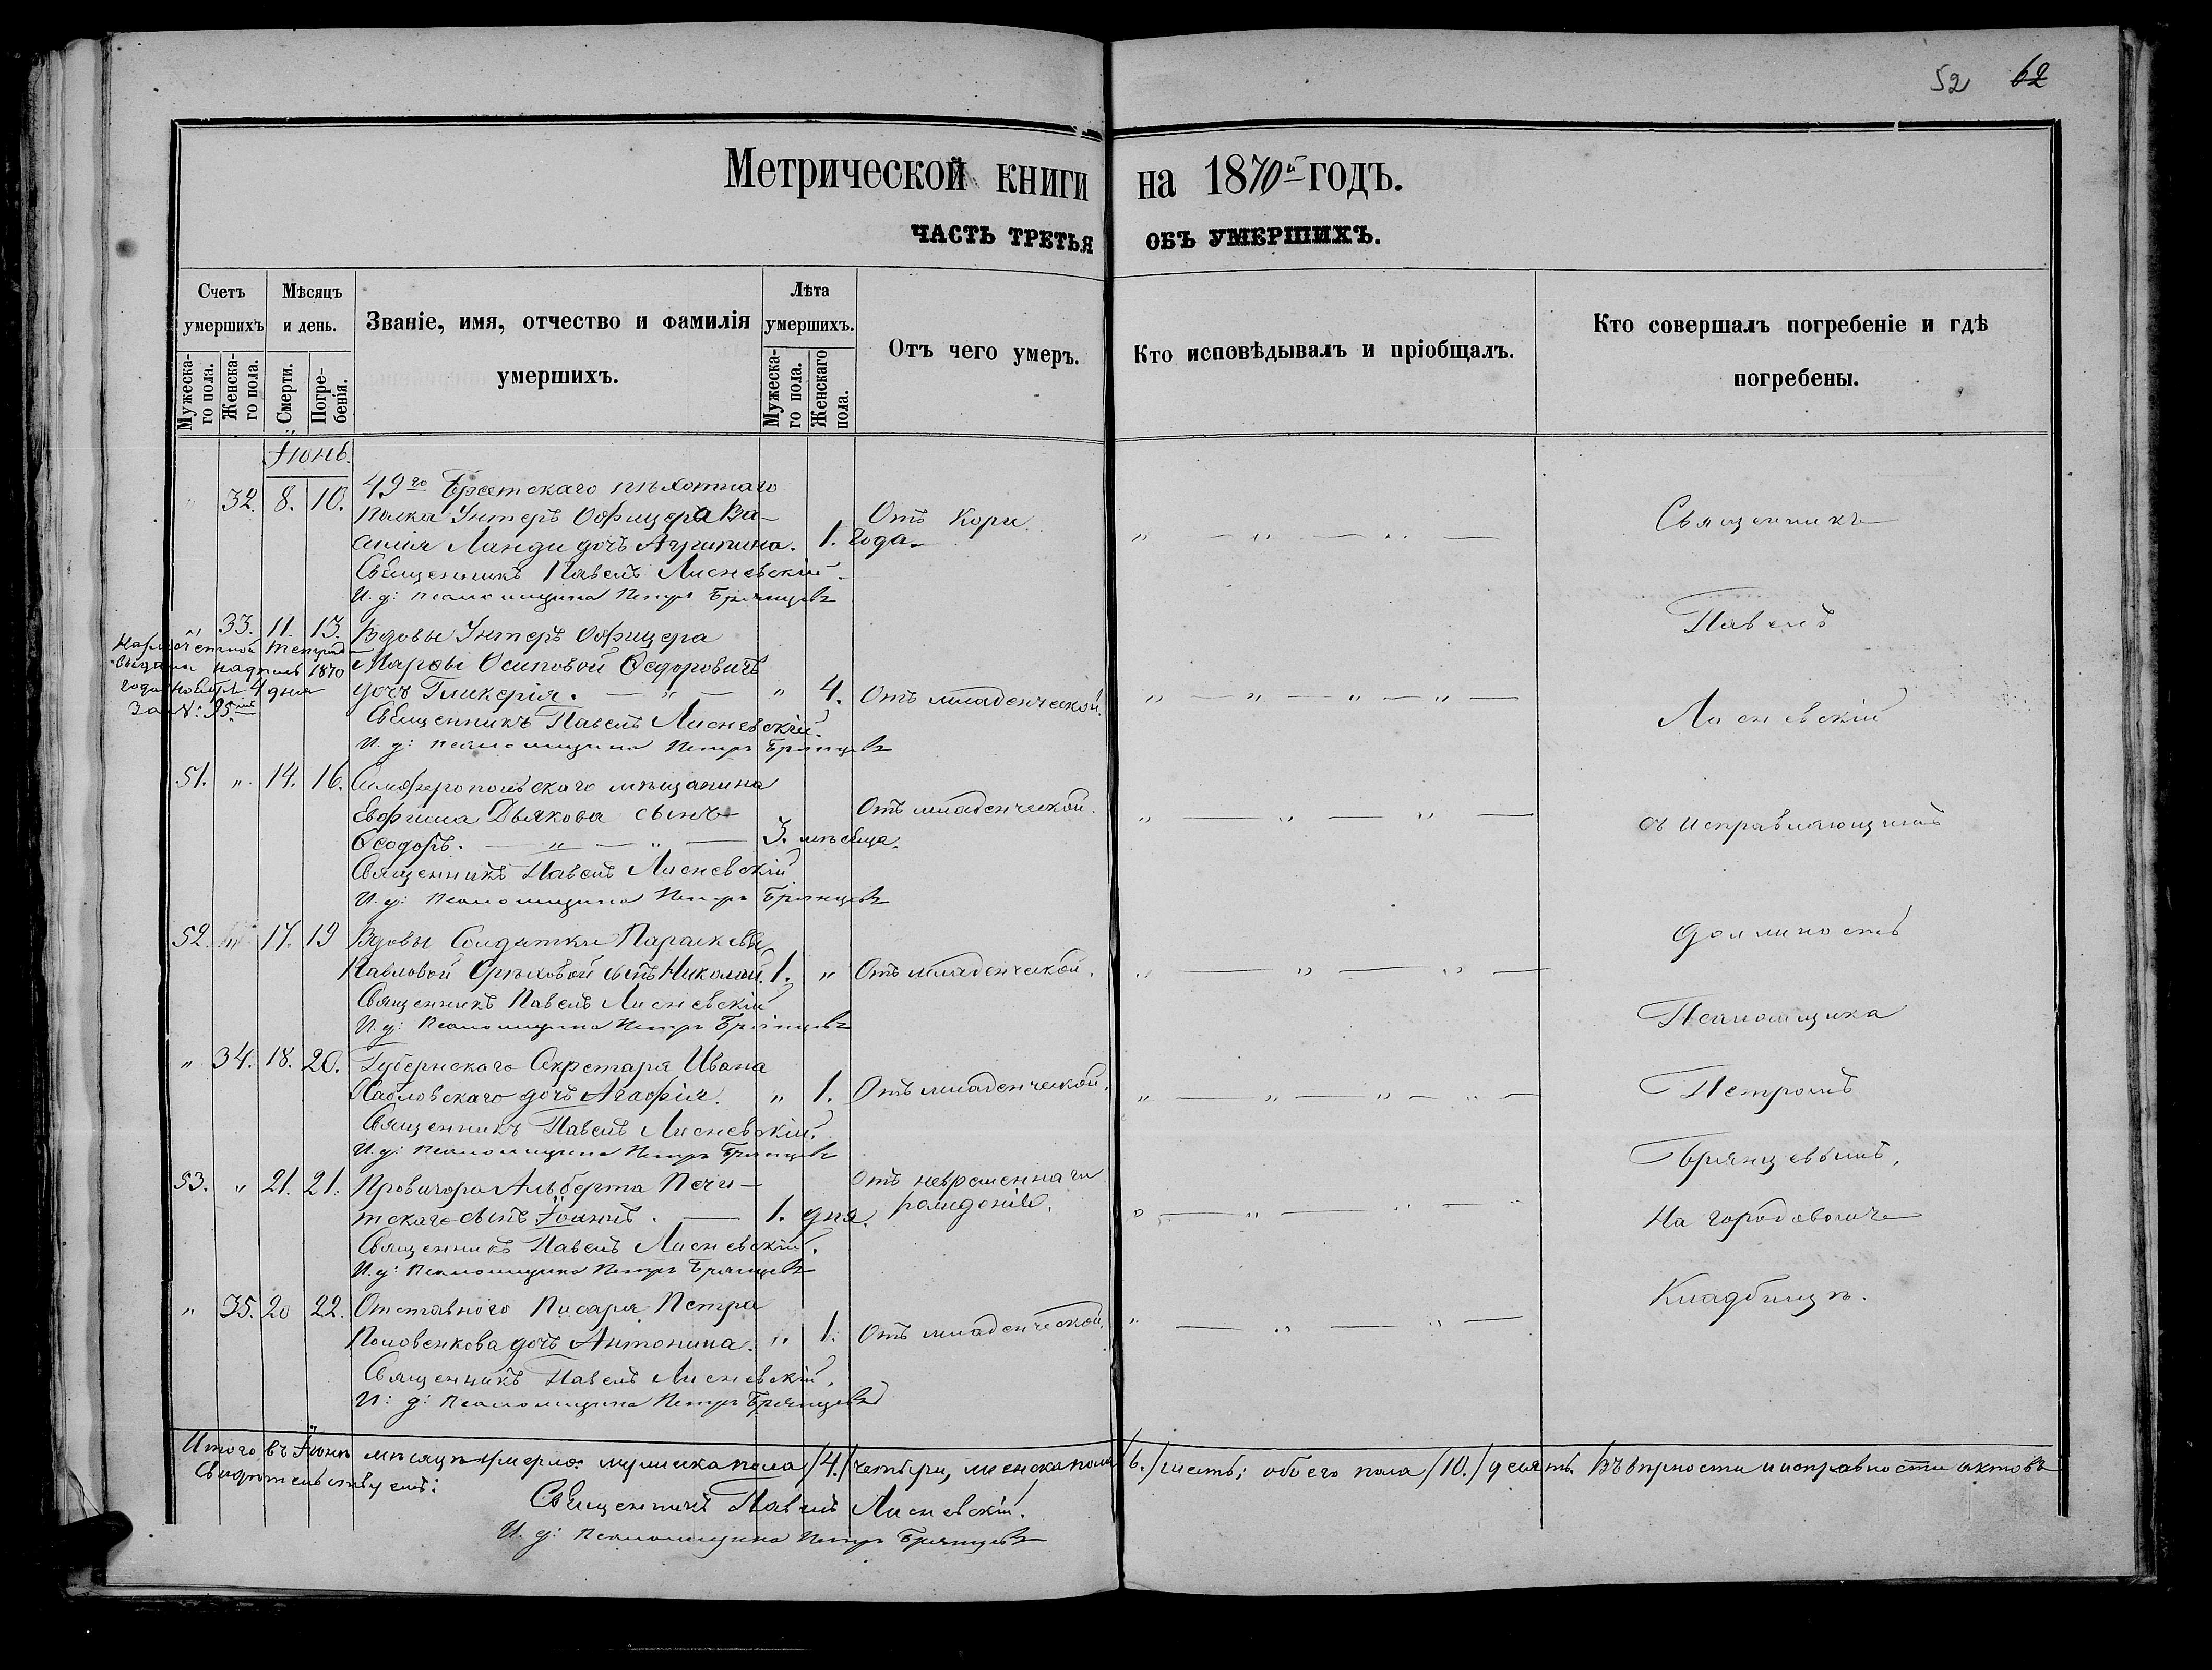 52 62
Метрической книги на 1870й годъ.
ЧАСТЬ ТРЕТЬЯ ОБЪ УМЕРШИХЪ.
Счетъ умершихъ
Мѣсяцъ и день.
Званіе, имя, отчество и фамилія умершихъ.
Лѣта умершихъ.
Отъ чего умеръ.
Кто исповѣдывалъ и пріобщалъ.
Кто совершалъ погребеніе и гдѣ погребены.
Мужеска-го пола.
Женска-го пола.
Смерти.
Погре-бенія.
Мужеска-го пола.
Женскаго пола.
Іюнь.
32. 8. 10. 49го Брестскаго пѣхотнаго
полка Унтеръ Офицера Ва-
силія Ланди дочь Агрипина. 1. года Отъ Кори.
Священникъ Павелъ Лисневскій
И. д: Псаломщика Петръ Брянцевъ
33. 11. 13. Вдовы Унтеръ Офицера
Марѳы Осиповой Ѳедоровичъ
дочь Гликерія. — " — " 4. Отъ младенческой.
Священникъ Павелъ Лисневскій.
И. д: Псаломщика Петръ Брянцевъ
выданы 1870
года Ноября 4 дня
За №: 95.
51. " 14. 16. Симферопольскаго мѣщанина
Евфима Дьякова сынъ
Ѳеодоръ. — " — " — 3. мѣсяца. Отъ младенческой.
Священникъ Павелъ Лисневскій
И. д: Псаломщика Петръ Брянцевъ
52. 17. 19 Вдовы Солдатки Параскевы
Павловой Орѣховой сынъ Николай. 1. " Отъ младенческой.
Священникъ Павелъ Лисневскій
И. д: Псаломщика Петръ Брянцевъ
" 34. 18. 20. Губернскаго Секретаря Ивана
дочь Агафія. " 1. Отъ младенческой.
Священникъ Павелъ Лисневскій.
И. д: Псаломщика Петръ Брянцевъ
53. " 21. 21. Провизора Альберта Печи-
тскаго сынъ Іоаннъ. — 1. дня. Отъ невременнаго
рожденія.
Священникъ Павелъ Лисневскій.
И. д: Псаломщика Петръ Брянцевъ
" 35. 20 22. Отставнаго Писаря Петра
Половенкова дочь Антонина. " 1. Отъ младенческой.
Священникъ Павелъ Лисневскій.
И: д: Псаломщика Петръ Брянцевъ
Священникъ
Павелъ
Лисневскій
съ исправляющимъ
должность
Псаломщика
Петромъ
Брянцевымъ.
На городовомъ
Кладбищѣ.
Итого въ Іюнѣ мѣсяцѣ умерло: мужеска пола /4./ четыри, женска пола /6./ шесть; обоего пола /10./ десять. Въ вѣрности и исправности актовъ
свидѣтельствуемъ:
Священникъ Павелъ Лисневскій.
И. д: Псаломщика Петръ Брянцевъ